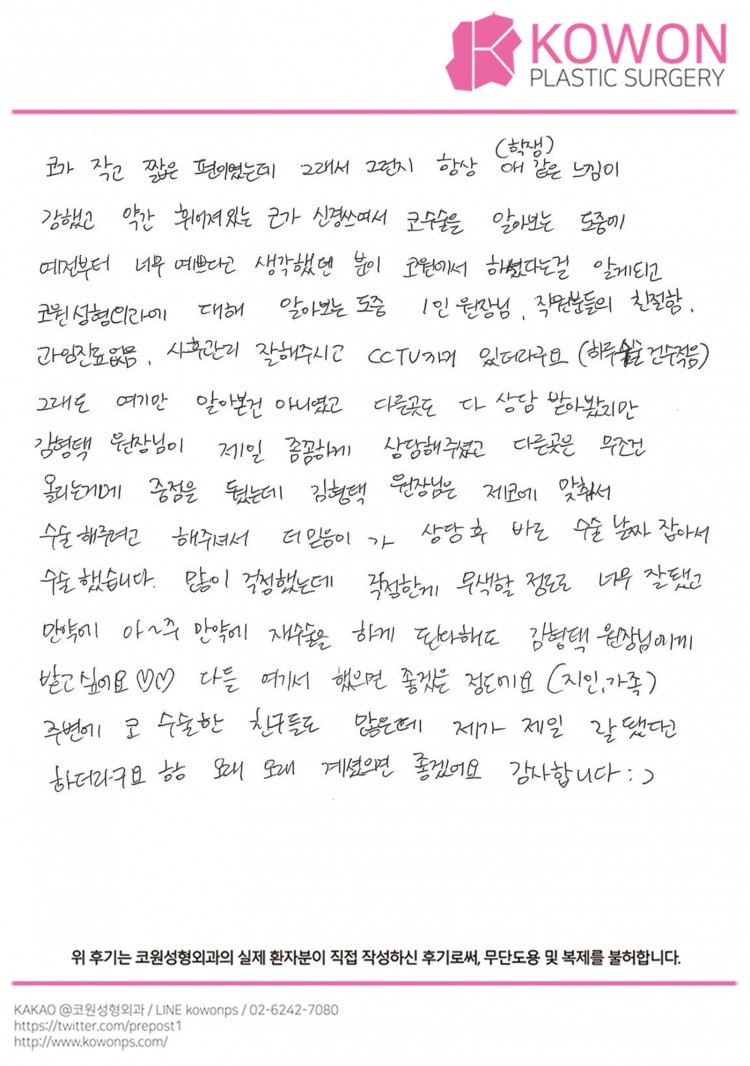 KOWON
PLASTIC SURGERY
(학생)
코가 작고 짧은 편이였는데 그래서 그런지 항상 애 같은 느낌이
강했고 약간 휘어져있는 코가 신경쓰여서 코수술을 알아보는 도중에
예전부터 너무 예쁘다고 생각했던 분이 코원에서 하셨다는걸 알게되고
코원성형외과에 대해 알아보는 도중 1인 원장님, 직원분들의 친절함,
과잉진료없음, 사후관리 잘해주시고 CCTV까지 있더라구요 (하루 수술 건수적음)
그래도 여기만 알아본건 아니였고 다른곳도 다 상담 받아봤지만
김형택 원장님이 제일 꼼꼼하게 상담해주셨고 다른곳은 무조건
올리는게에 중점을 뒀는데 김형택 원장님은 제코에 맞춰서
수술해주려고 해주셔서 더 믿음이 가 상담 후 바로 수술 날짜 잡아서
수술했습니다. 많이 걱정했는데 걱정한게 무색할 정도로 너무 잘됐고
만약에 아~주 만약에 재수술을 하게 된다해도 김형택 원장님에게
받고싶어요♡♡ 다들 여기서 했으면 좋겠는 정도에요 (지인, 가족)
주변에 코 수술한 친구들도 많은데 제가 제일 잘 됐다고
하더라구요 항상 오래 오래 계셨으면 좋겠어요 감사합니다 :)
위 후기는 코원성형외과의 실제 환자분이 직접 작성하신 후기로써, 무단도용 및 복제를 불허합니다.
KAKAO @코원성형외과 / LINE kowonps / 02-6242-7080
https://twitter.com/prepost1
http://www.kowonps.com/